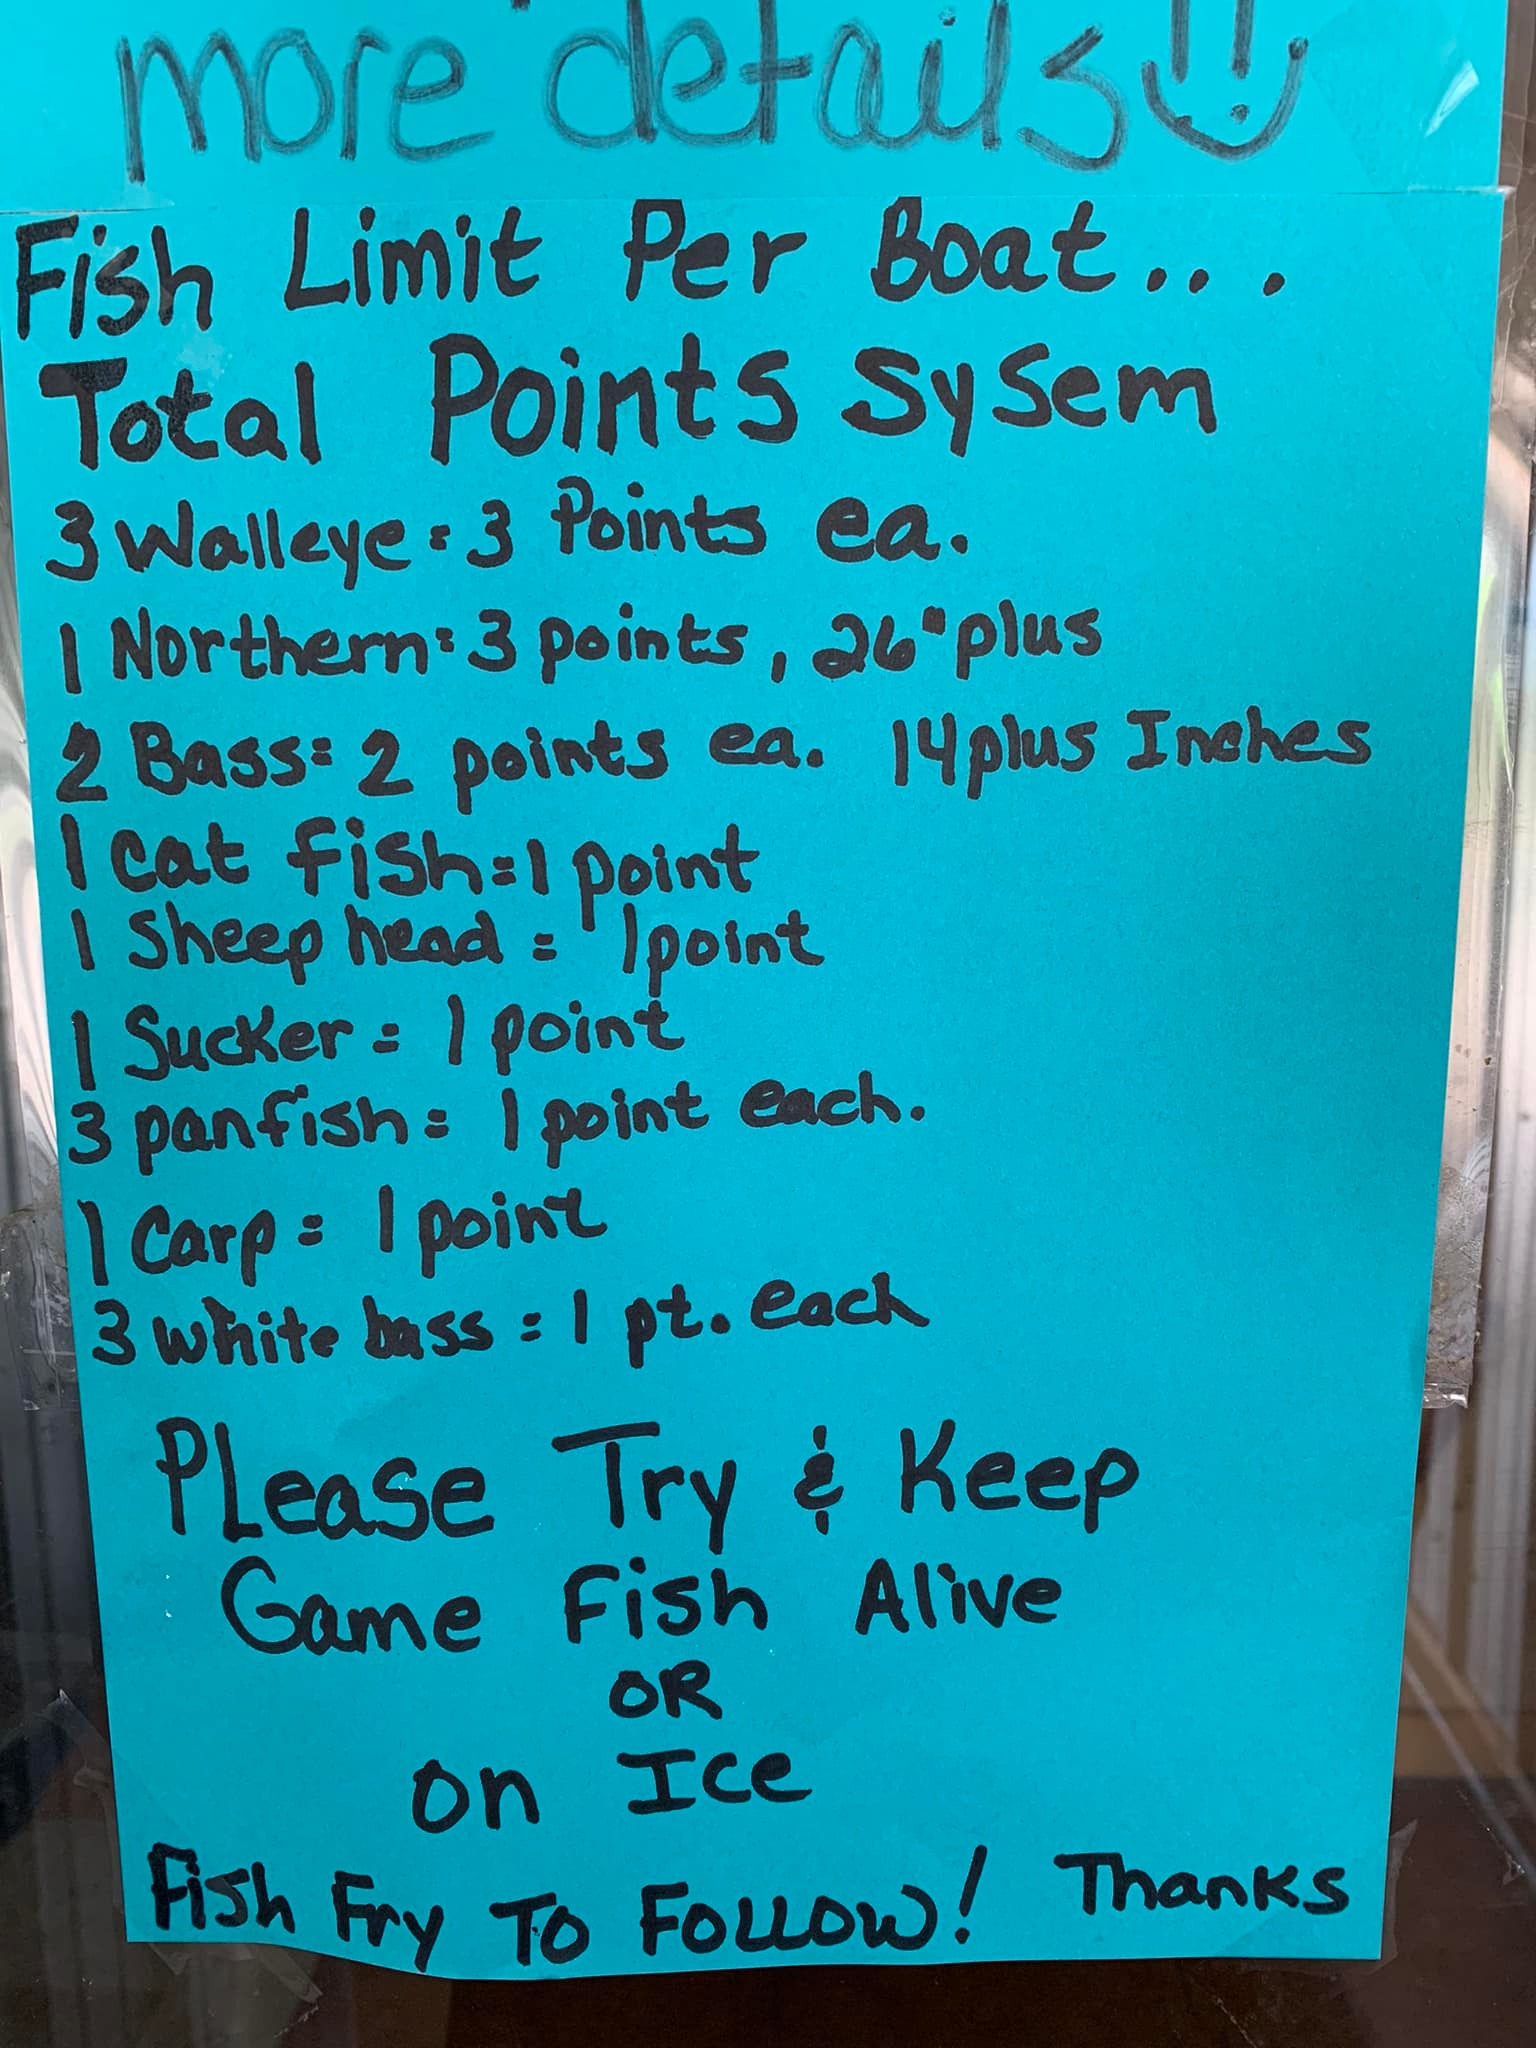 more details!!
Fish Limit Per Boat...
Total Points Sysem
3 Walleye = 3 Points ea.
1 Northern = 3 points, 26" plus
2 Bass = 2 points ea. 14 plus Inches
1 cat fish = 1 point
1 Sheep head = 1 point
1 Sucker = 1 point
3 panfish = 1 point each.
1 Carp = 1 point
3 white bass = 1 pt. each
PLease Try & Keep
Game Fish Alive
OR
on Ice
Fish Fry To Follow! Thanks